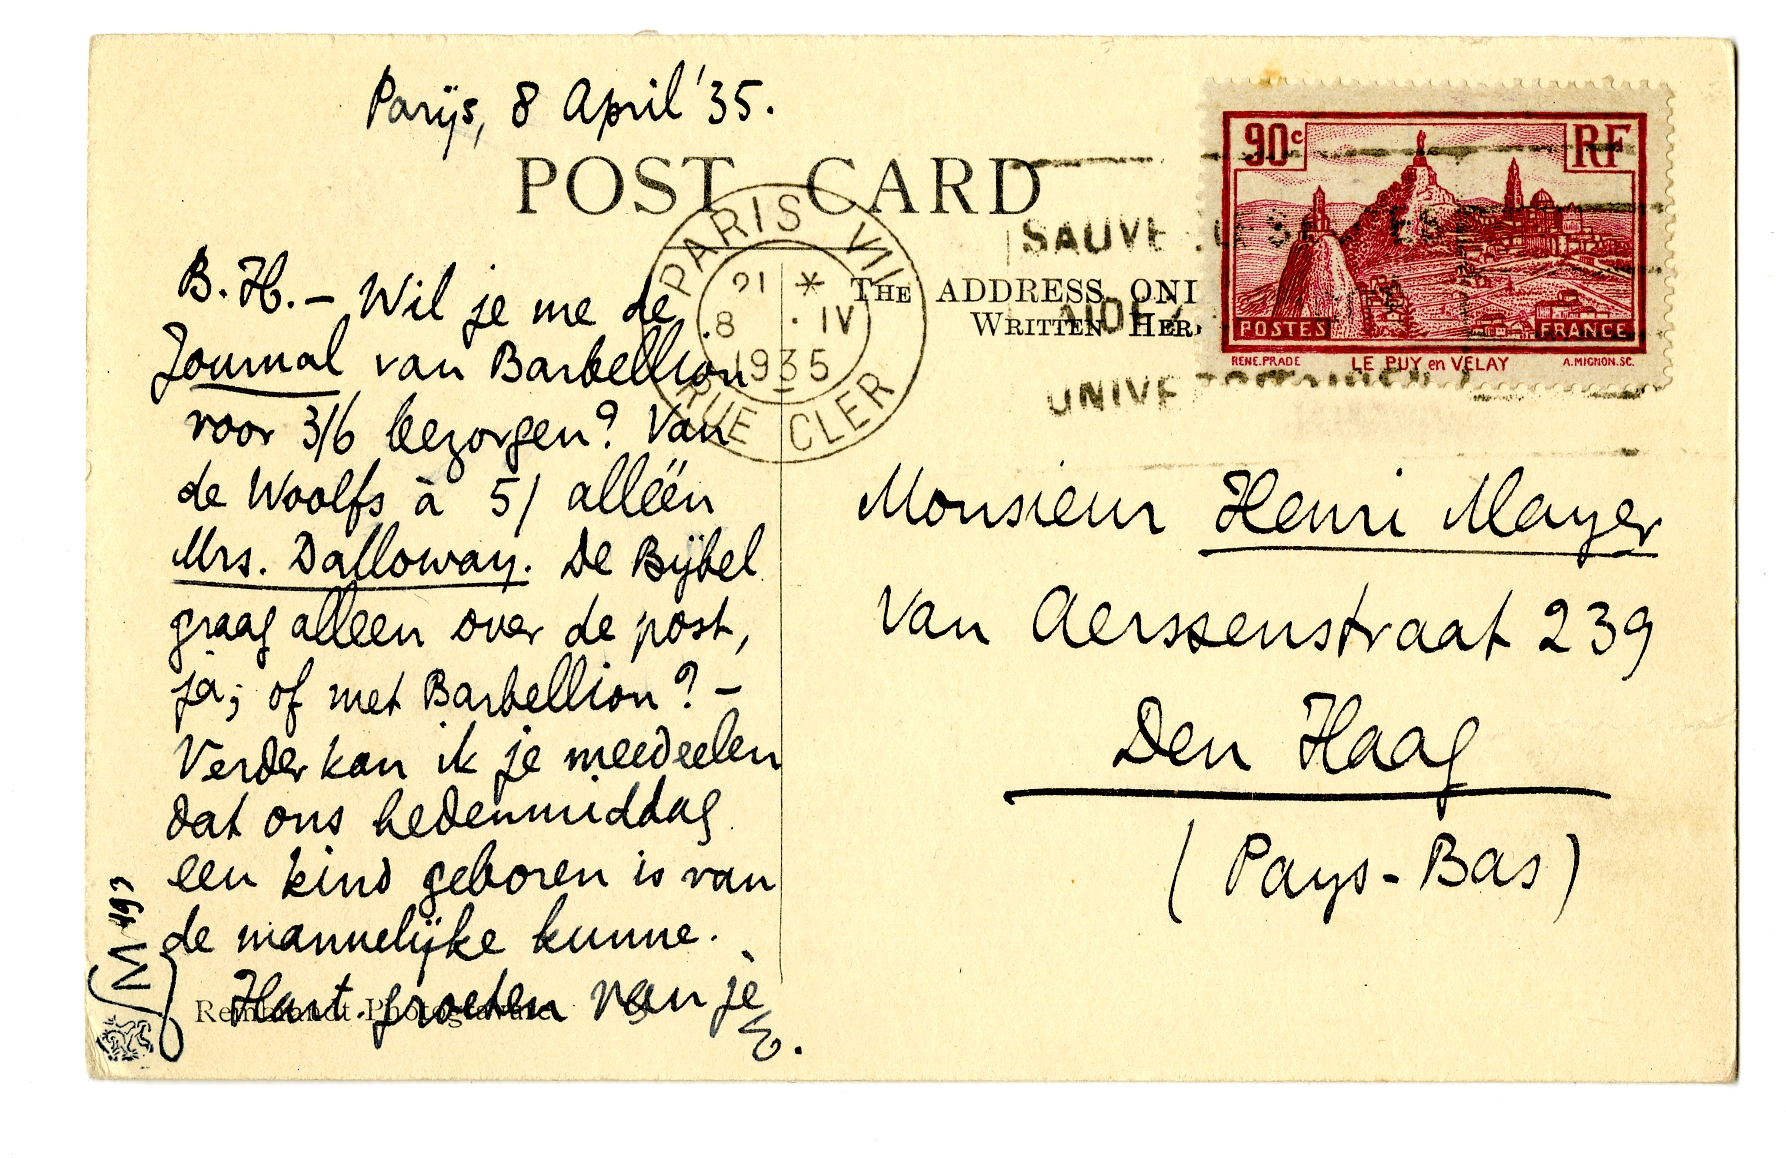 Parijs, 8 April '35.
POST CARD
90c RF
PARIS VII
21 *
8 . IV
1935
RUE CLER
SAUVE
THE ADDRESS ONL
WRITTEN HER
POSTES FRANCE
RENE.PRADE LE PUY en VELAY A.MIGNON.SC.
UNIVE
B.H. – Wil je me de
Journal van Barbellion
voor 3/6 bezorgen? Van
de Woolfs à 5/ alléén
Mrs. Dalloway. De Bijbel
graag alleen over de post,
ja; of met Barbellion? –
Verder kan ik je meedeelen
dat ons hedenmiddag
een kind geboren is van
de mannelijke kunne.
Hart. groeten van je
Rembrandt Photogravure
M 493
Monsieur Henri Mayer
van Aerssenstraat 239
Den Haag
(Pays-Bas)